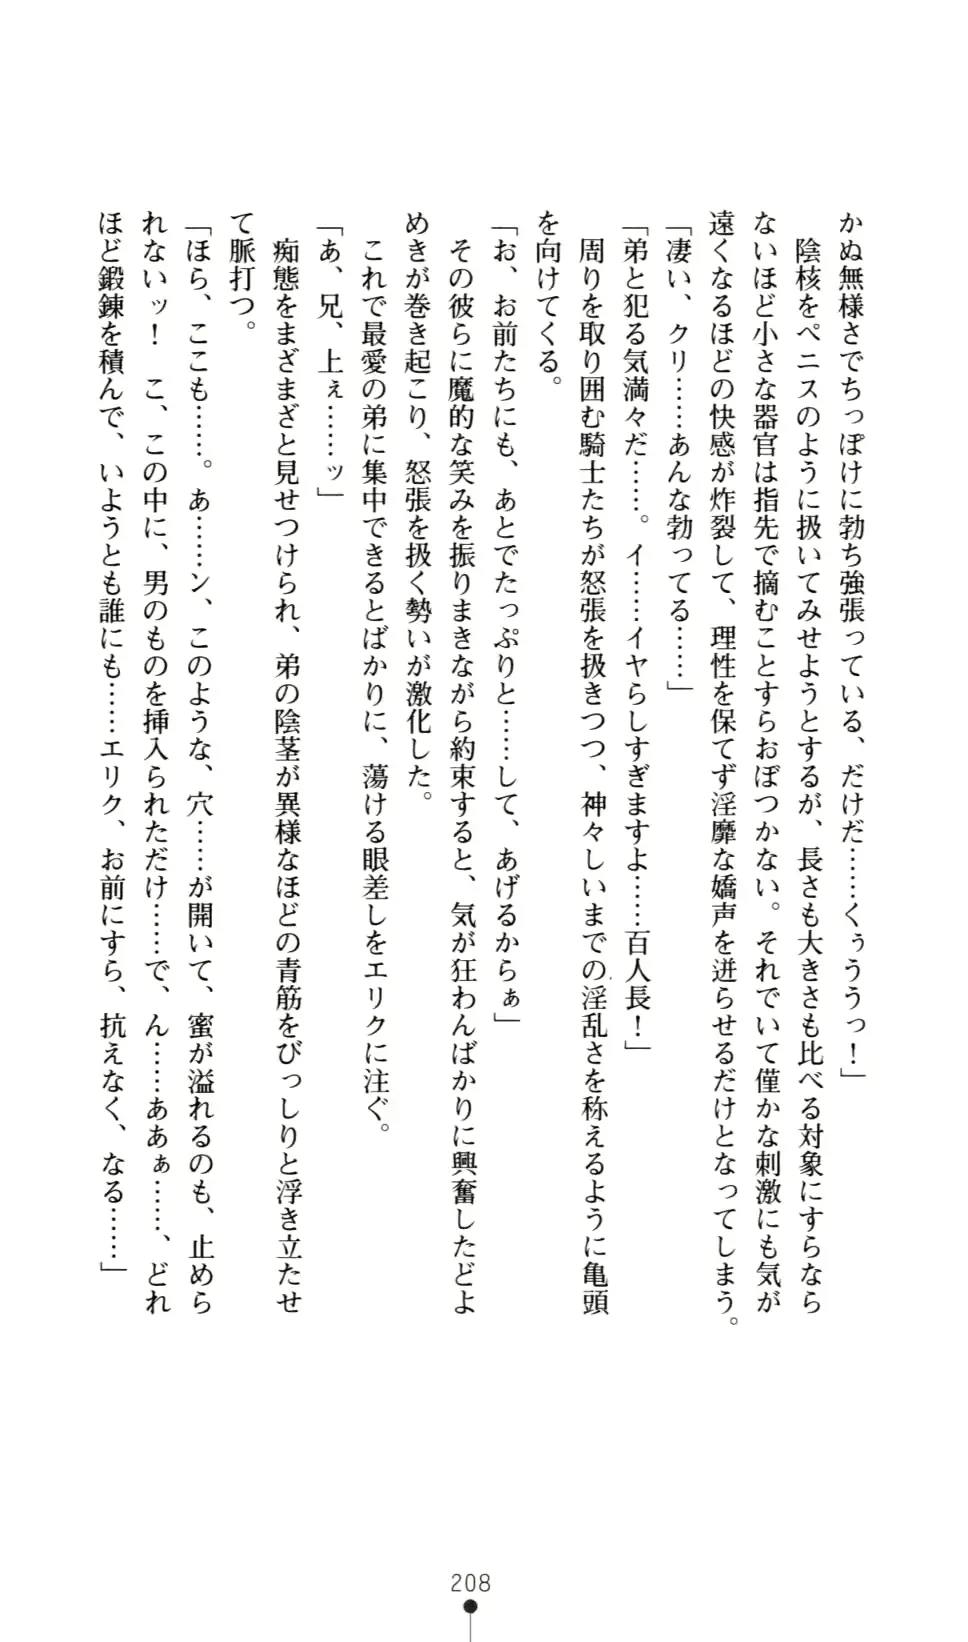 かぬ無様さでちっぽけに勃ち強張っている、だけだ……くぅううっ！」
陰核をペニスのように扱いてみせようとするが、長さも大きさも比べる対象にすらなら
ないほど小さな器官は指先で摘むことすらおぼつかない。それでいて僅かな刺激にも気が
遠くなるほどの快感が炸裂して、理性を保てず淫靡な嬌声を迸らせるだけとなってしまう。
「凄い、クリ……あんな勃ってる……」
「弟と犯る気満々だ……。イ……イヤらしすぎますよ……百人長！」
周りを取り囲む騎士たちが怒張を扱きつつ、神々しいまでの淫乱さを称えるように亀頭
を向けてくる。
「お、お前たちにも、あとでたっぷりと……して、あげるからぁ」
その彼らに魔的な笑みを振りまきながら約束すると、気が狂わんばかりに興奮したどよ
めきが巻き起こり、怒張を扱く勢いが激化した。
これで最愛の弟に集中できるとばかりに、蕩ける眼差しをエリクに注ぐ。
「あ、兄、上ぇ……ッ」
痴態をまざまざと見せつけられ、弟の陰茎が異様なほどの青筋をびっしりと浮き立たせ
て脈打つ。
「ほら、ここも……。あ……ン、このような、穴……が開いて、蜜が溢れるのも、止めら
れないッ！　こ、この中に、男のものを挿入られただけ……で、ん……ああぁ……、どれ
ほど鍛錬を積んで、いようとも誰にも……エリク、お前にすら、抗えなく、なる……」
208